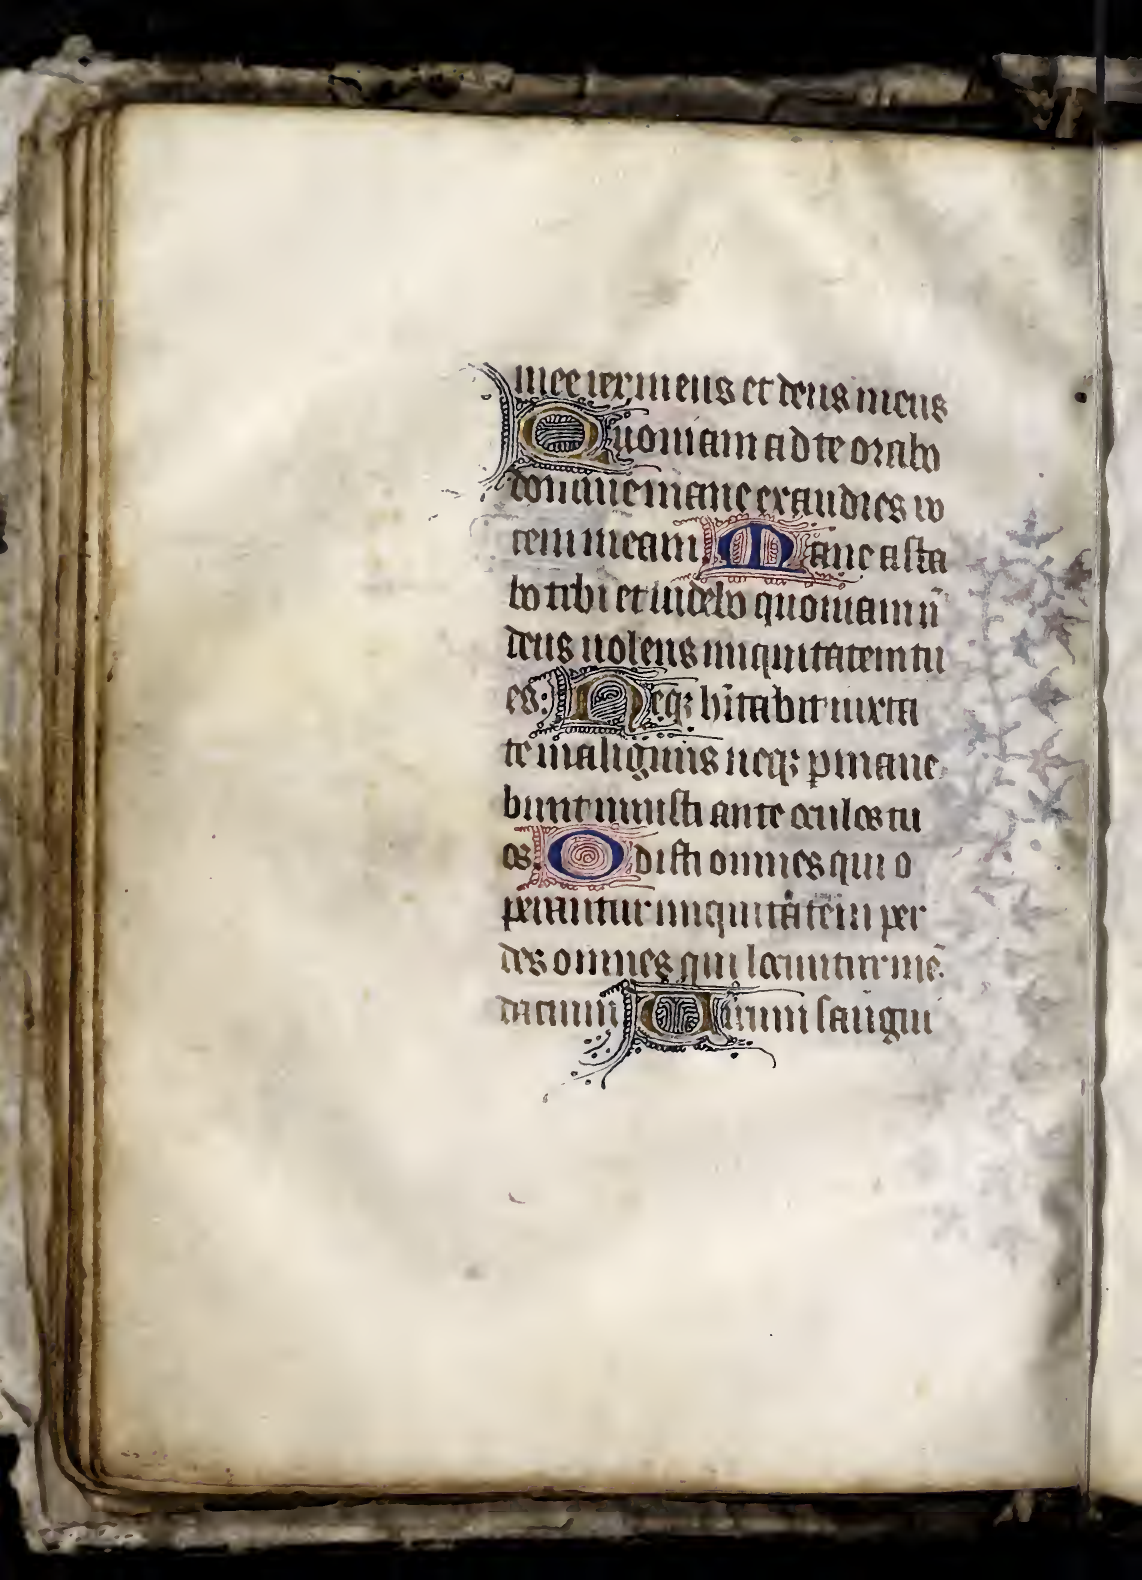 mee rex meus et deus meus
Quoniam ad te orabo
domine mane exaudies vo
cem meam Mane asta
bo tibi et videbo quoniam ñ
deus uolens iniquitatem tu
es. Neqꝫ hitabit iuxta
te malignus neqꝫ ꝑmane
bunt iniusti ante oculos tu
os. Odisti omnes qui o
perantur iniquitatem per
des omnes qui locuntur mē
dacium Uirum sangui